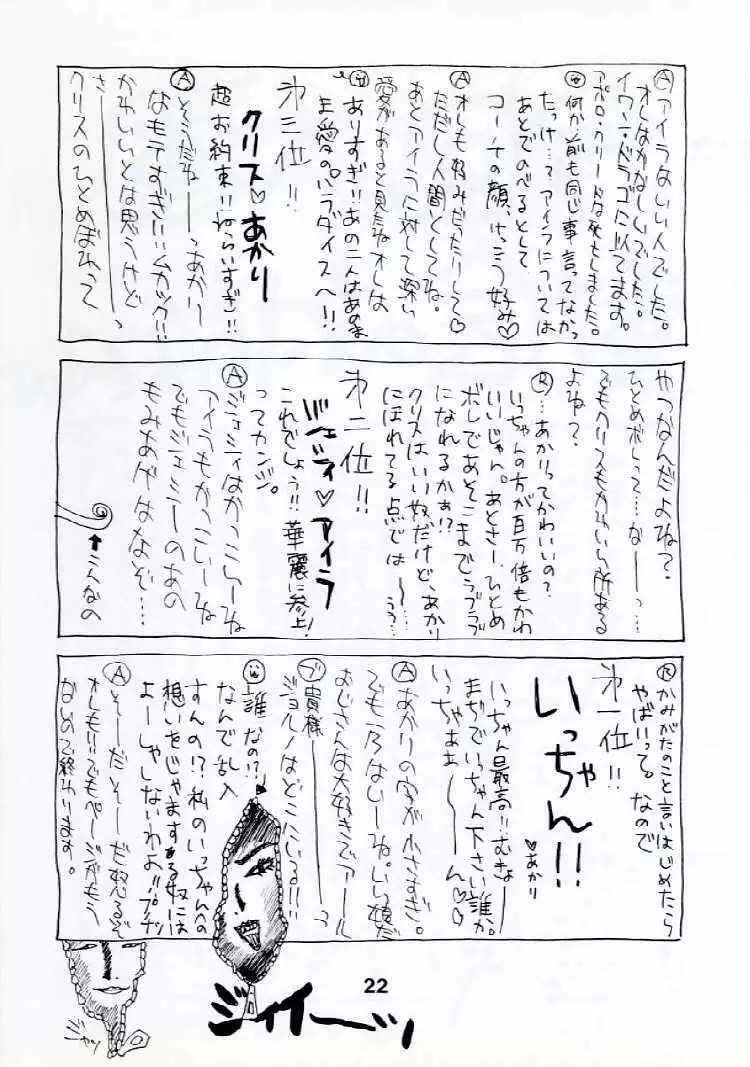 Ⓐアイラはいい人でした。
オレはかなしいでした。
イワン・ドラゴに似てます。
アポロ・クリードは死もしました。
何か前も同じ事言ってなかっ
たっけ…？アイラについては
あとでのべるとして
コーナの顔、けっこう好み♡
Ⓐオレも好みだったりして♡
ただし人間としてね。
あとアイラに対して深い
愛があると見たねオレは
ありすぎ!!あの二人はあのま
ま愛のパラダイスへ!!
第三位!!
クリス♡あかり
超お約束!!ねらいすぎ!!
Ⓐそうだねーーっあかり
なもテすぎ!!ムカック!!
さーーーっ
かわいいとは思うけど
クリスのひとめぼれって
やつなんだよね？
ひとめボレって…なーっ…
でもクリスもかわいい所ある
よね？
Ⓡ…あかりってかわいいの？
いっちゃんの方が百万倍もかわ
いいじゃん。あとさー、ひとめ
ボレであそこまでラブラブ
になれるかぁ!?
クリスはいい奴だけど、あかり
にほれてる点では〜…うぅ…
第二位!!
ジェミティ♡アイラ
これでしょう!!華麗に参上！
ってカンジ。
Ⓐジェミティはかっこいーね
アイラもかっこいーね
でもジェミニーのあの
もみあげはなぞ…
↑こんなの
Ⓡかみがたのこと言いはじめたら
やばいって。なので
第一位!!
いっちゃん!!
♡あかり
いっちゃん最高!!むきょー
まぢでいっちゃん下さい誰か。
いっちゃあぁーーん♡♡
Ⓐあかりの字が小さすぎ。
でも乃はいーね。いい娘だ
おじさんは大好きでアール
ブ貴様ーーーっ
ジョルノはどこにいる!!!
誰なの!?
なんで乱入
すんの!?私のいっちゃんへの
想いをじゃまするある奴には
よーしゃしないわよ!!プンプッ
Ⓐそーだそーだ怒るぞ
オレも!!でもページがもう
ないので終わります。
ジャッ
ジィイーッ
22